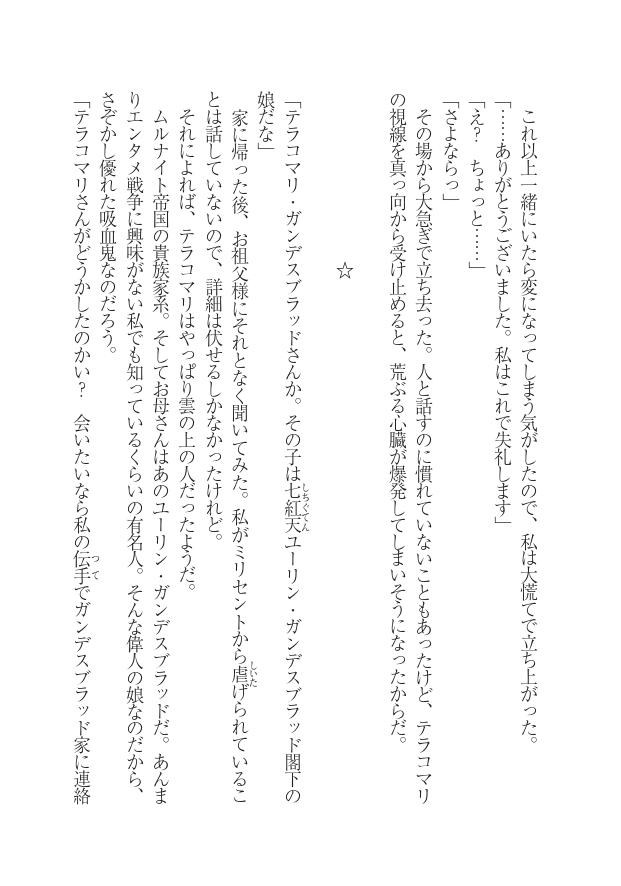 これ以上一緒にいたら変になってしまう気がしたので、私は大慌てで立ち上がった。
「……ありがとうございました。私はこれで失礼します」
「え？　ちょっと……」
「さよならっ」
　その場から大急ぎで立ち去った。人と話すのに慣れていないこともあったけど、テラコマリ
の視線を真っ向から受け止めると、荒ぶる心臓が爆発してしまいそうになったからだ。
☆
「テラコマリ・ガンデスブラッドさんか。その子は七紅天ユーリン・ガンデスブラッド閣下の
しちぐてん
娘だな」
　家に帰った後、お祖父様にそれとなく聞いてみた。私がミリセントから虐げられているこ
しいた
とは話していないので、詳細は伏せるしかなかったけれど。
　それによれば、テラコマリはやっぱり雲の上の人だったようだ。
　ムルナイト帝国の貴族家系。そしてお母さんはあのユーリン・ガンデスブラッドだ。あんま
りエンタメ戦争に興味がない私でも知っているくらいの有名人。そんな偉人の娘なのだから、
さぞかし優れた吸血鬼なのだろう。
「テラコマリさんがどうかしたのかい？　会いたいなら私の伝手でガンデスブラッド家に連絡
つて